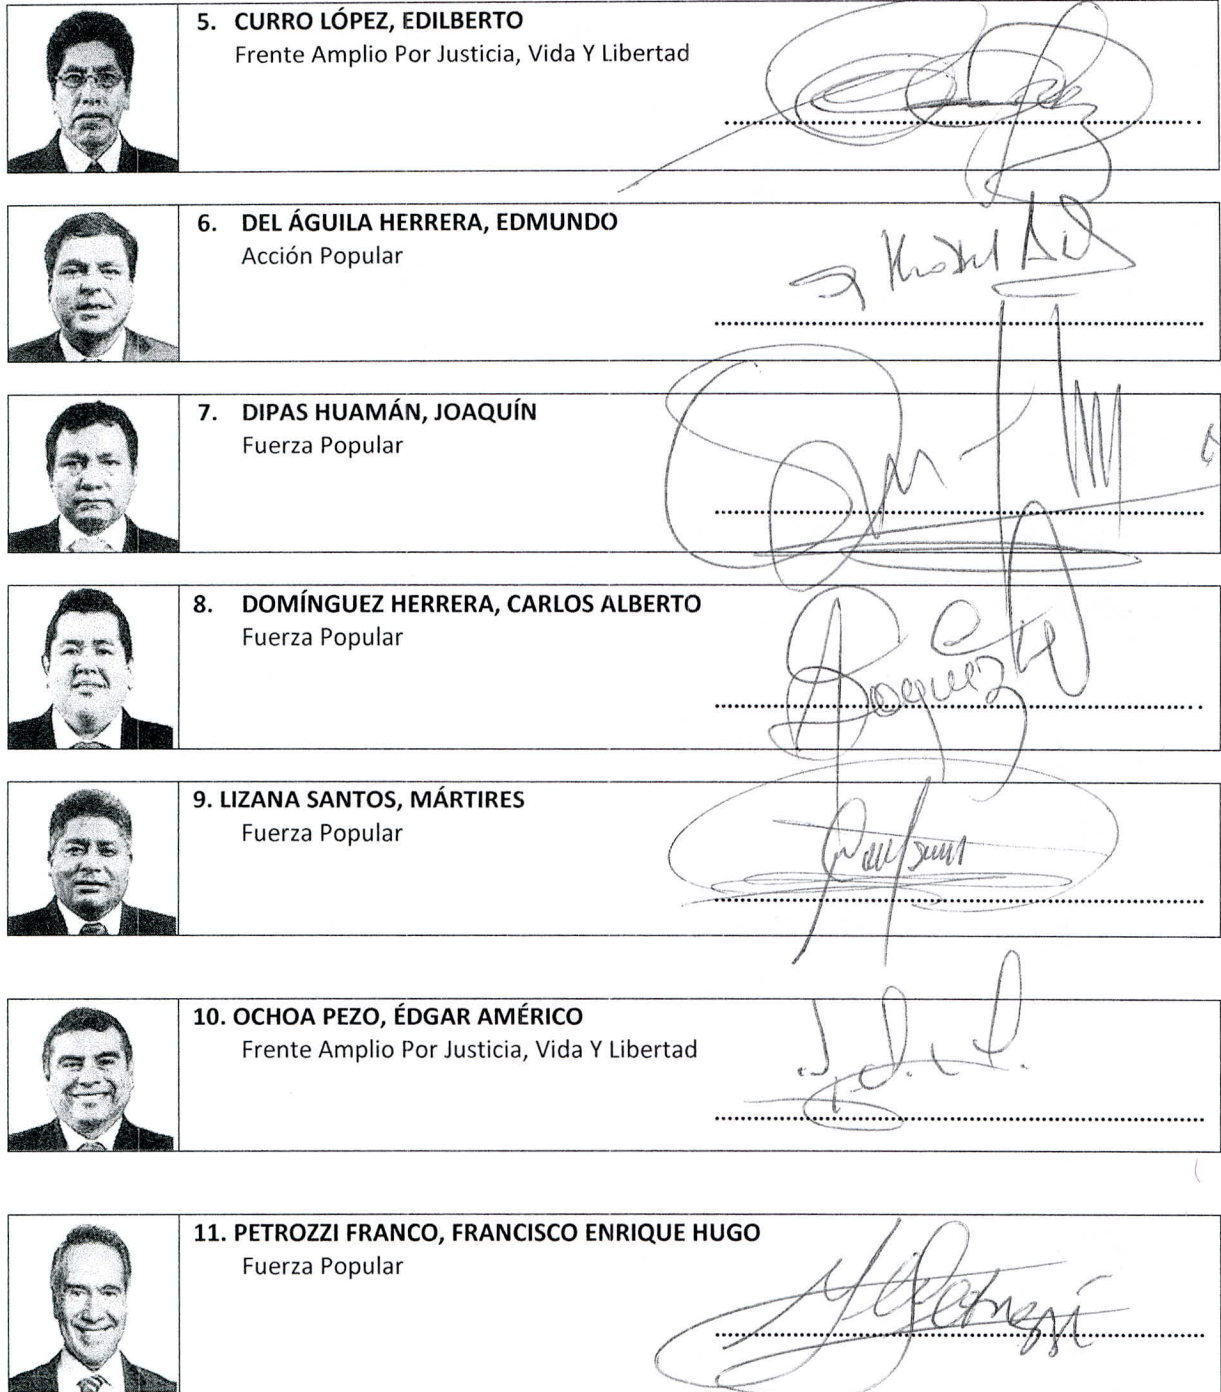 5. CURRO LÓPEZ, EDILBERTO
Frente Amplio Por Justicia, Vida Y Libertad
6. DEL ÁGUILA HERRERA, EDMUNDO
Acción Popular
7. DIPAS HUAMÁN, JOAQUÍN
Fuerza Popular
8. DOMÍNGUEZ HERRERA, CARLOS ALBERTO
Fuerza Popular
9. LIZANA SANTOS, MÁRTIRES
Fuerza Popular
10. OCHOA PEZO, ÉDGAR AMÉRICO
Frente Amplio Por Justicia, Vida Y Libertad
11. PETROZZI FRANCO, FRANCISCO ENRIQUE HUGO
Fuerza Popular